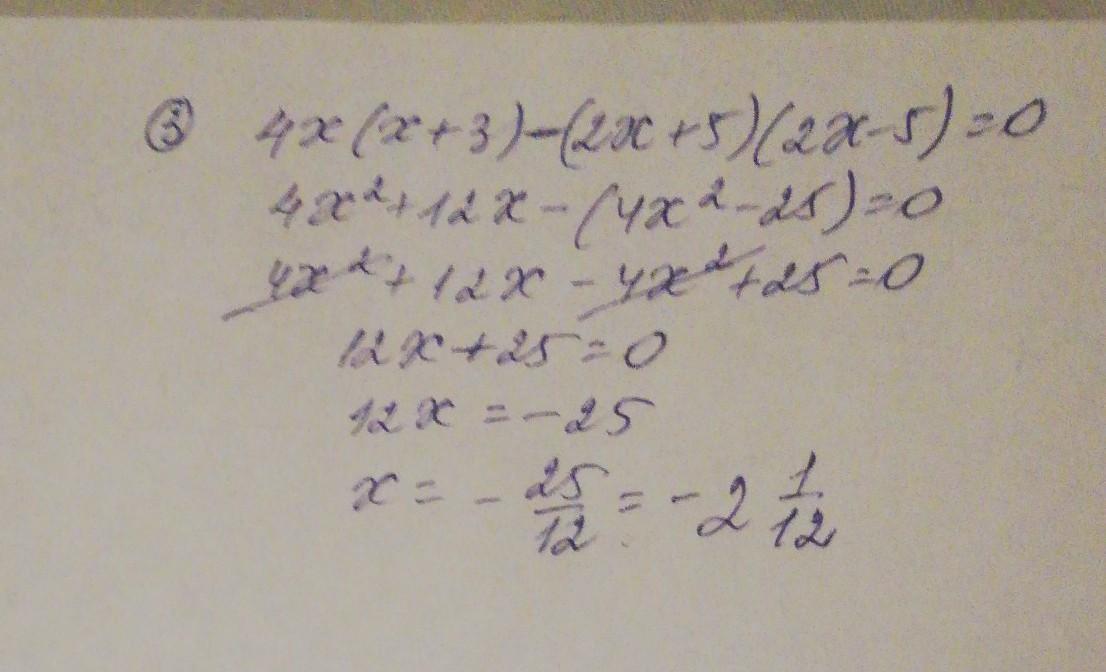 ③ 4x(x+3)-(2x+5)(2x-5)=0
4x²+12x-(4x²-25)=0
4x²+12x-4x²+25=0
12x+25=0
12x=-25
x=-25/12=-2 1/12